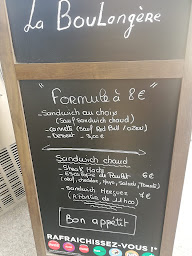 La BouLangère
"Formule à 8€"
- Sandwich au choix
(Sauf Sandwich chaud)
- canette (Sauf Red Bull /
- Dessert
Sandwich chaud
- Steak Haché
- Escalope de Poulet 6€
- Sandwich Merguez 4€
(A Partir de 11h00)
Bon appétit
RAFRAICHISSEZ-VOUS !